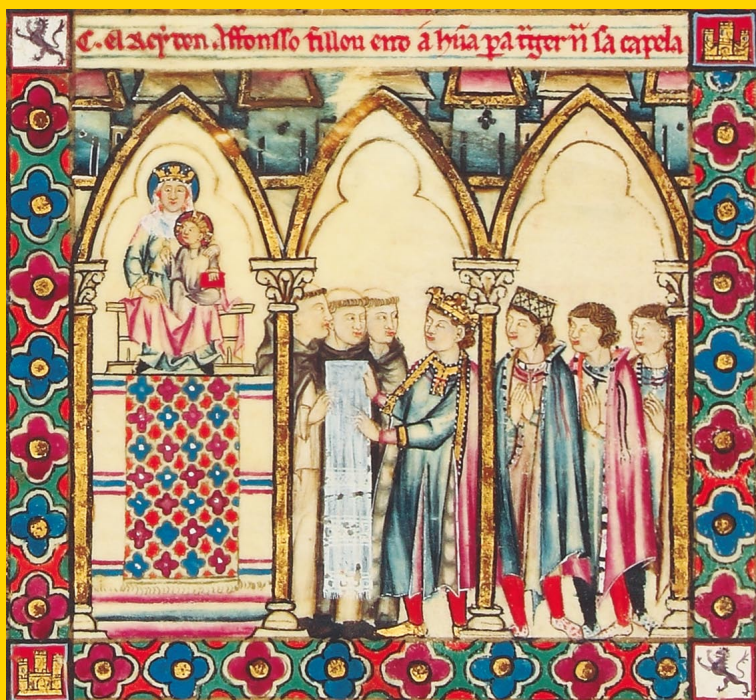 C. el Rey ton Affonsso fillou ento á hũa pa ñ sa capela